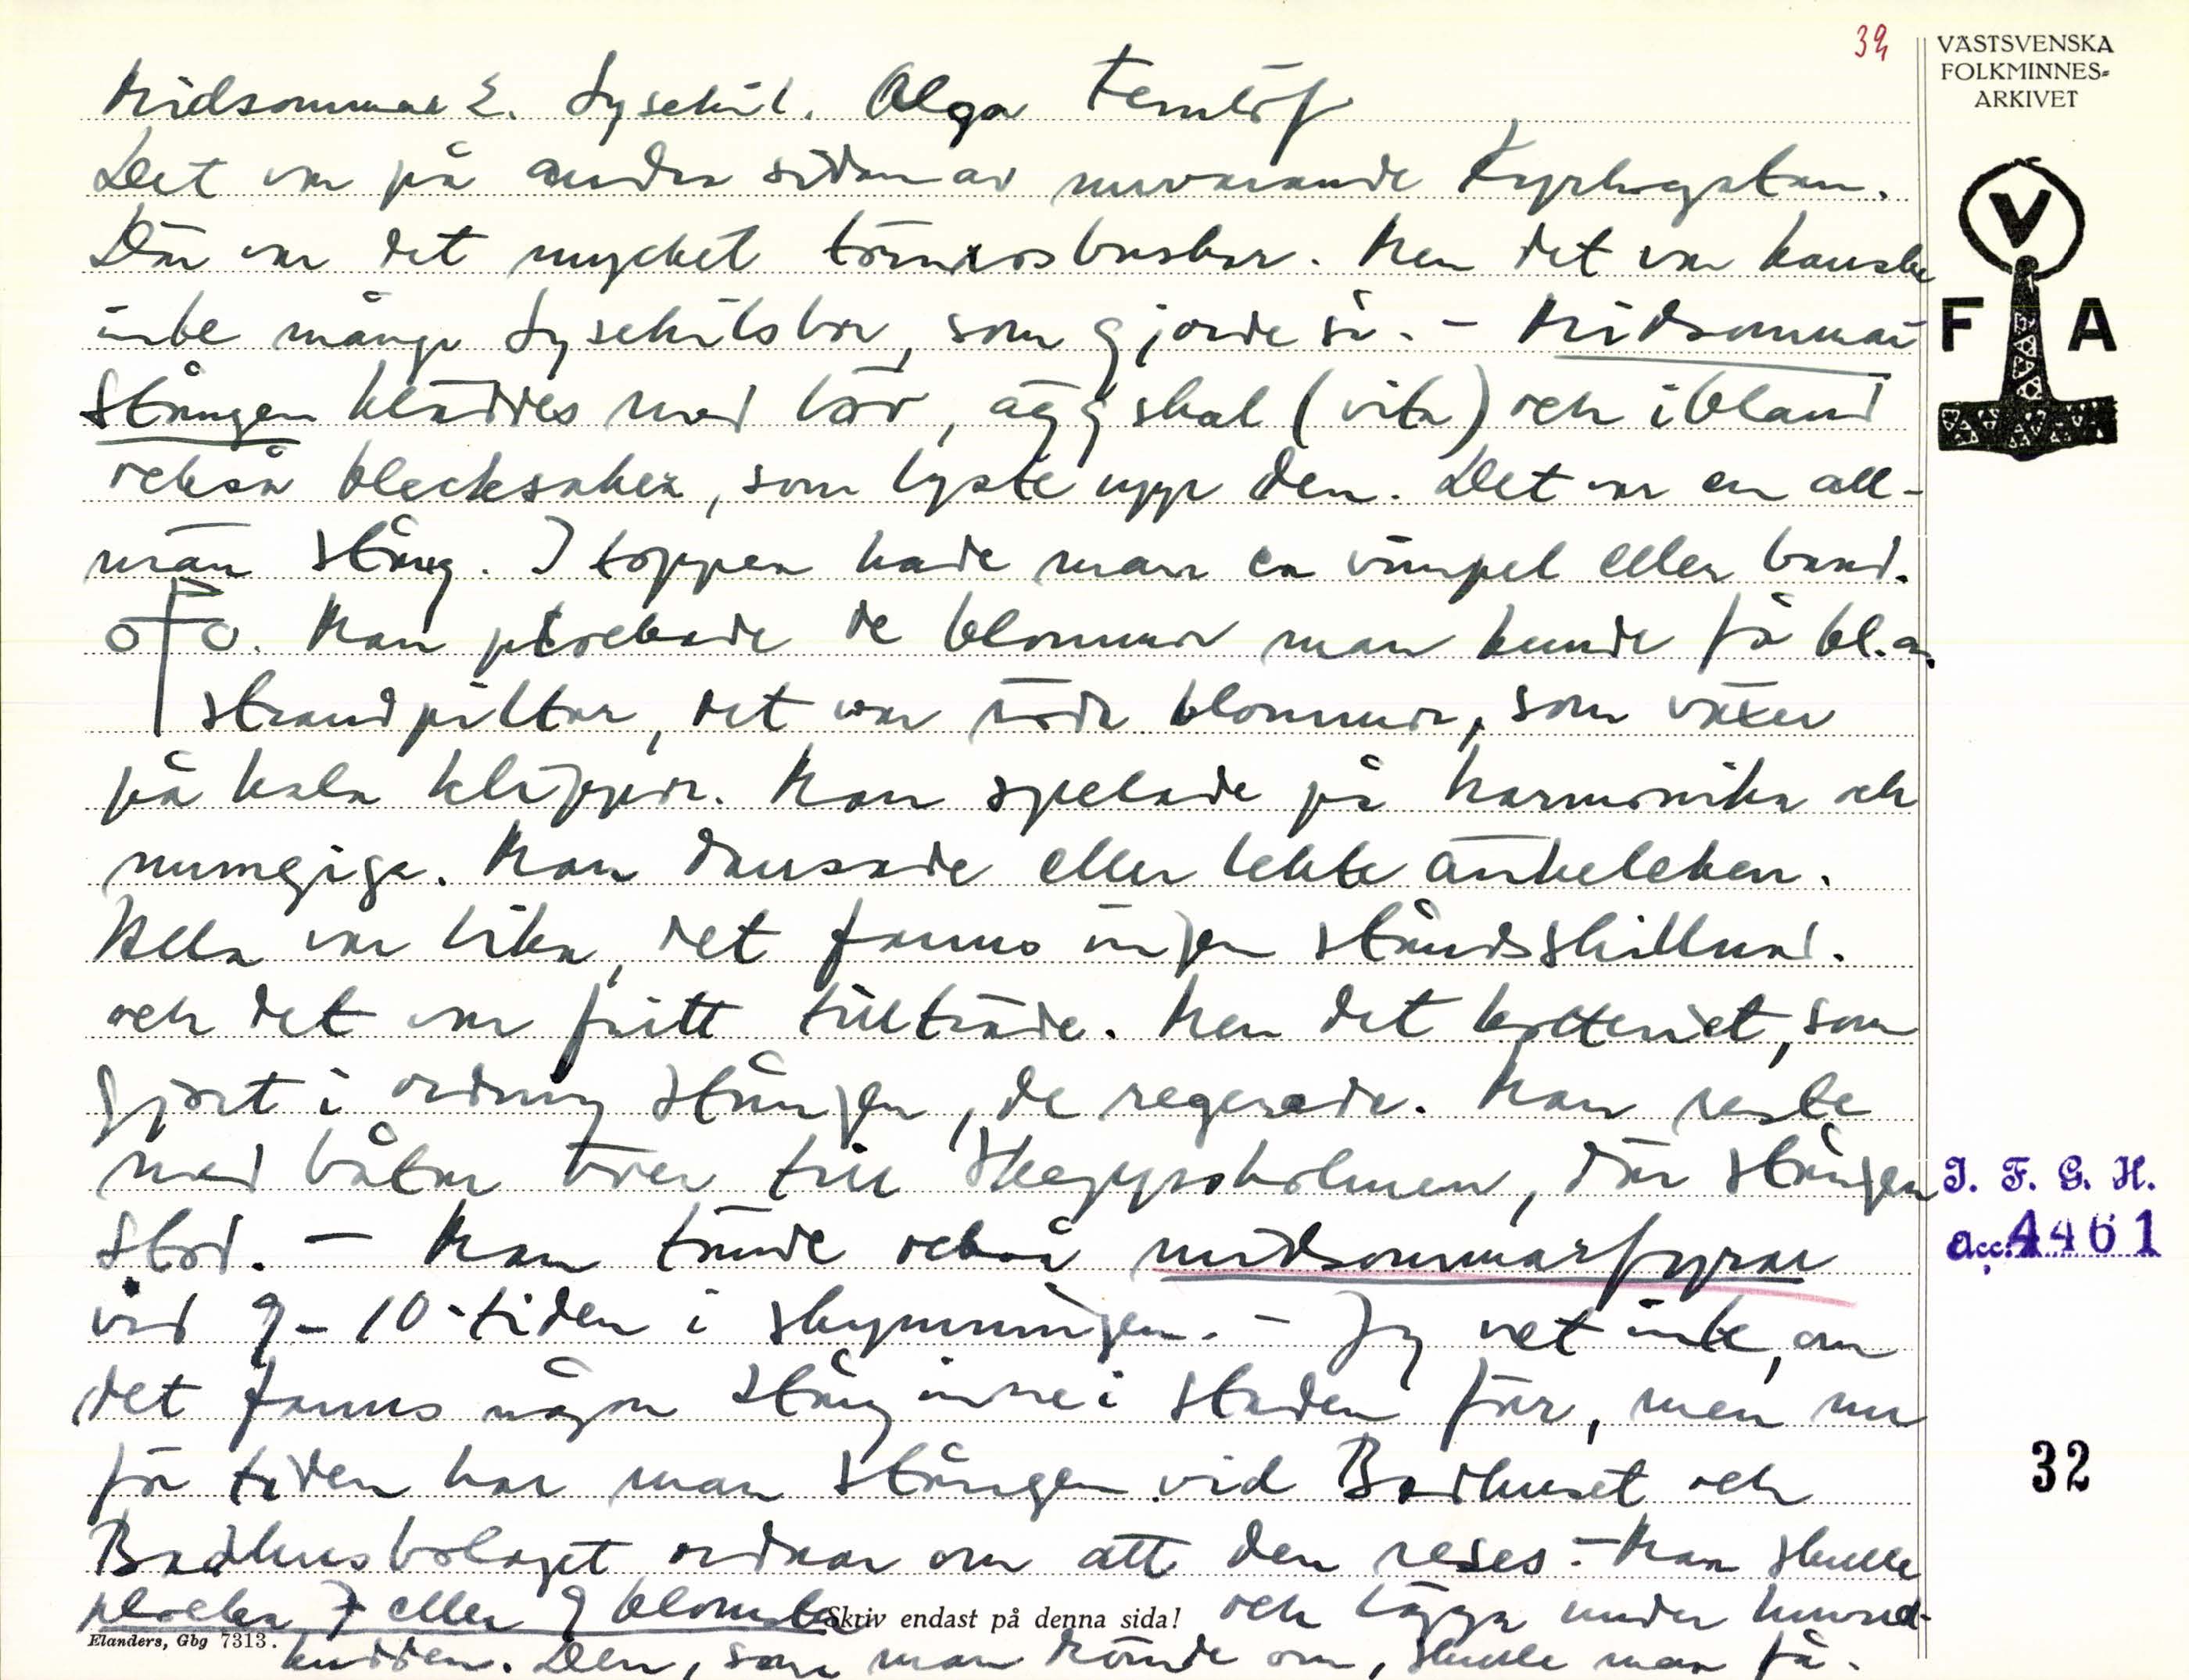 32
VÄSTSVENSKA
FOLKMINNES-
ARKIVET
V
F A
Midsommar 2. Lysekil. Olga Ternlöf
Det var på andra sidan av nuvarande Kyrkogatan.
Där var det mycket törnrosbuskar. Men det var kanske
inte många Lysekilsbor, som gjorde så. - Midsommar
stången kläddes med löv, äggskal (vita) och ibland
också blecksaker, som lyste upp den. Det var en all-
män stång. I toppen hade man en vimpel eller band.
Man plockade de blommor man kunde få bl.a.
strandpiltar, det var röda blommor, som växer
på kala klippor. Man spelade på harmonika och
mungiga. Man dansade eller lekte änkeleken.
Alla var lika, det fanns ingen ståndsskillnad.
och det var fritt tillträde. Men det kotteriet, som
gjort i ordning stången, de regerade. Man reste
med båtar över till Skeppsholmen, där stången
stod. - Man tände också midsommarfyrar
vid 9-10-tiden i skymningen. - Jag vet inte, om
det fanns någon stång inne i staden förr, men nu
för tiden har man stången vid Badhuset och
Badhusbolaget ordnar om att den reses. - Man skulle
plocka 7 eller 9 blomster och lägga under huvud-
kudden. Den, som man drömde om, skulle man få.
Skriv endast på denna sida!
Elanders, Gbg 7313.
I. F. G. H.
acc. 4461
32